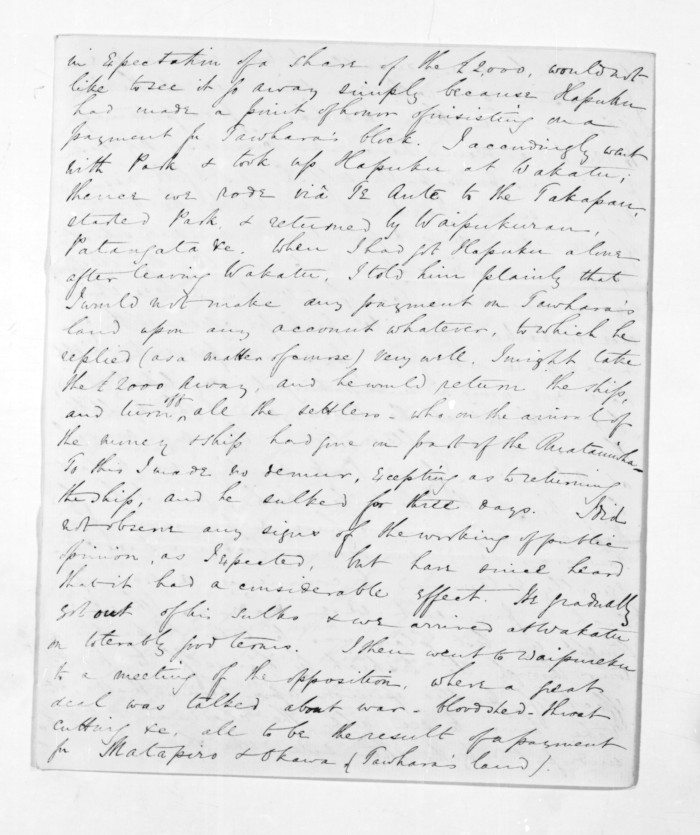 in Expectation of a share of the £2,000, would not
like to see it go away simply because Hapuku
had made a point of honor of insisting on a
payment for Tawhara's block. I accordingly went
with Park & took up Hapuku at Wakatu;
thence we rode viâ Te Aute to the Takapau,
started Park, & returned by Waipukurau,
Patangata &c. When I had got Hapuku alone
after leaving Wakatu, I told him plainly that
I would not make any payment on Tawhara's
land upon any account whatever, to which he
replied (as a matter of course) very well, I might take
the £2000 away, and he would return the ship,
and turn off all the settlers - who on the arrival of
the money & ship had gone on part of the Ruataniwha -
To this I made no demur, excepting as to returning
the ship, and he sulked for three days. I did
not observe any signs of the working of public
opinion, as I expected, but have since heard
that it had a considerable effect. He gradually
got out of his sulks & we arrived at Wakatu
on tolerably good terms. I then went to Waipureku
to a meeting of the opposition, where a great
deal was talked about war - bloodshed - throat
cutting &c. all to be the result of a payment
for Matapiro & Okawa (Tawhara's land).